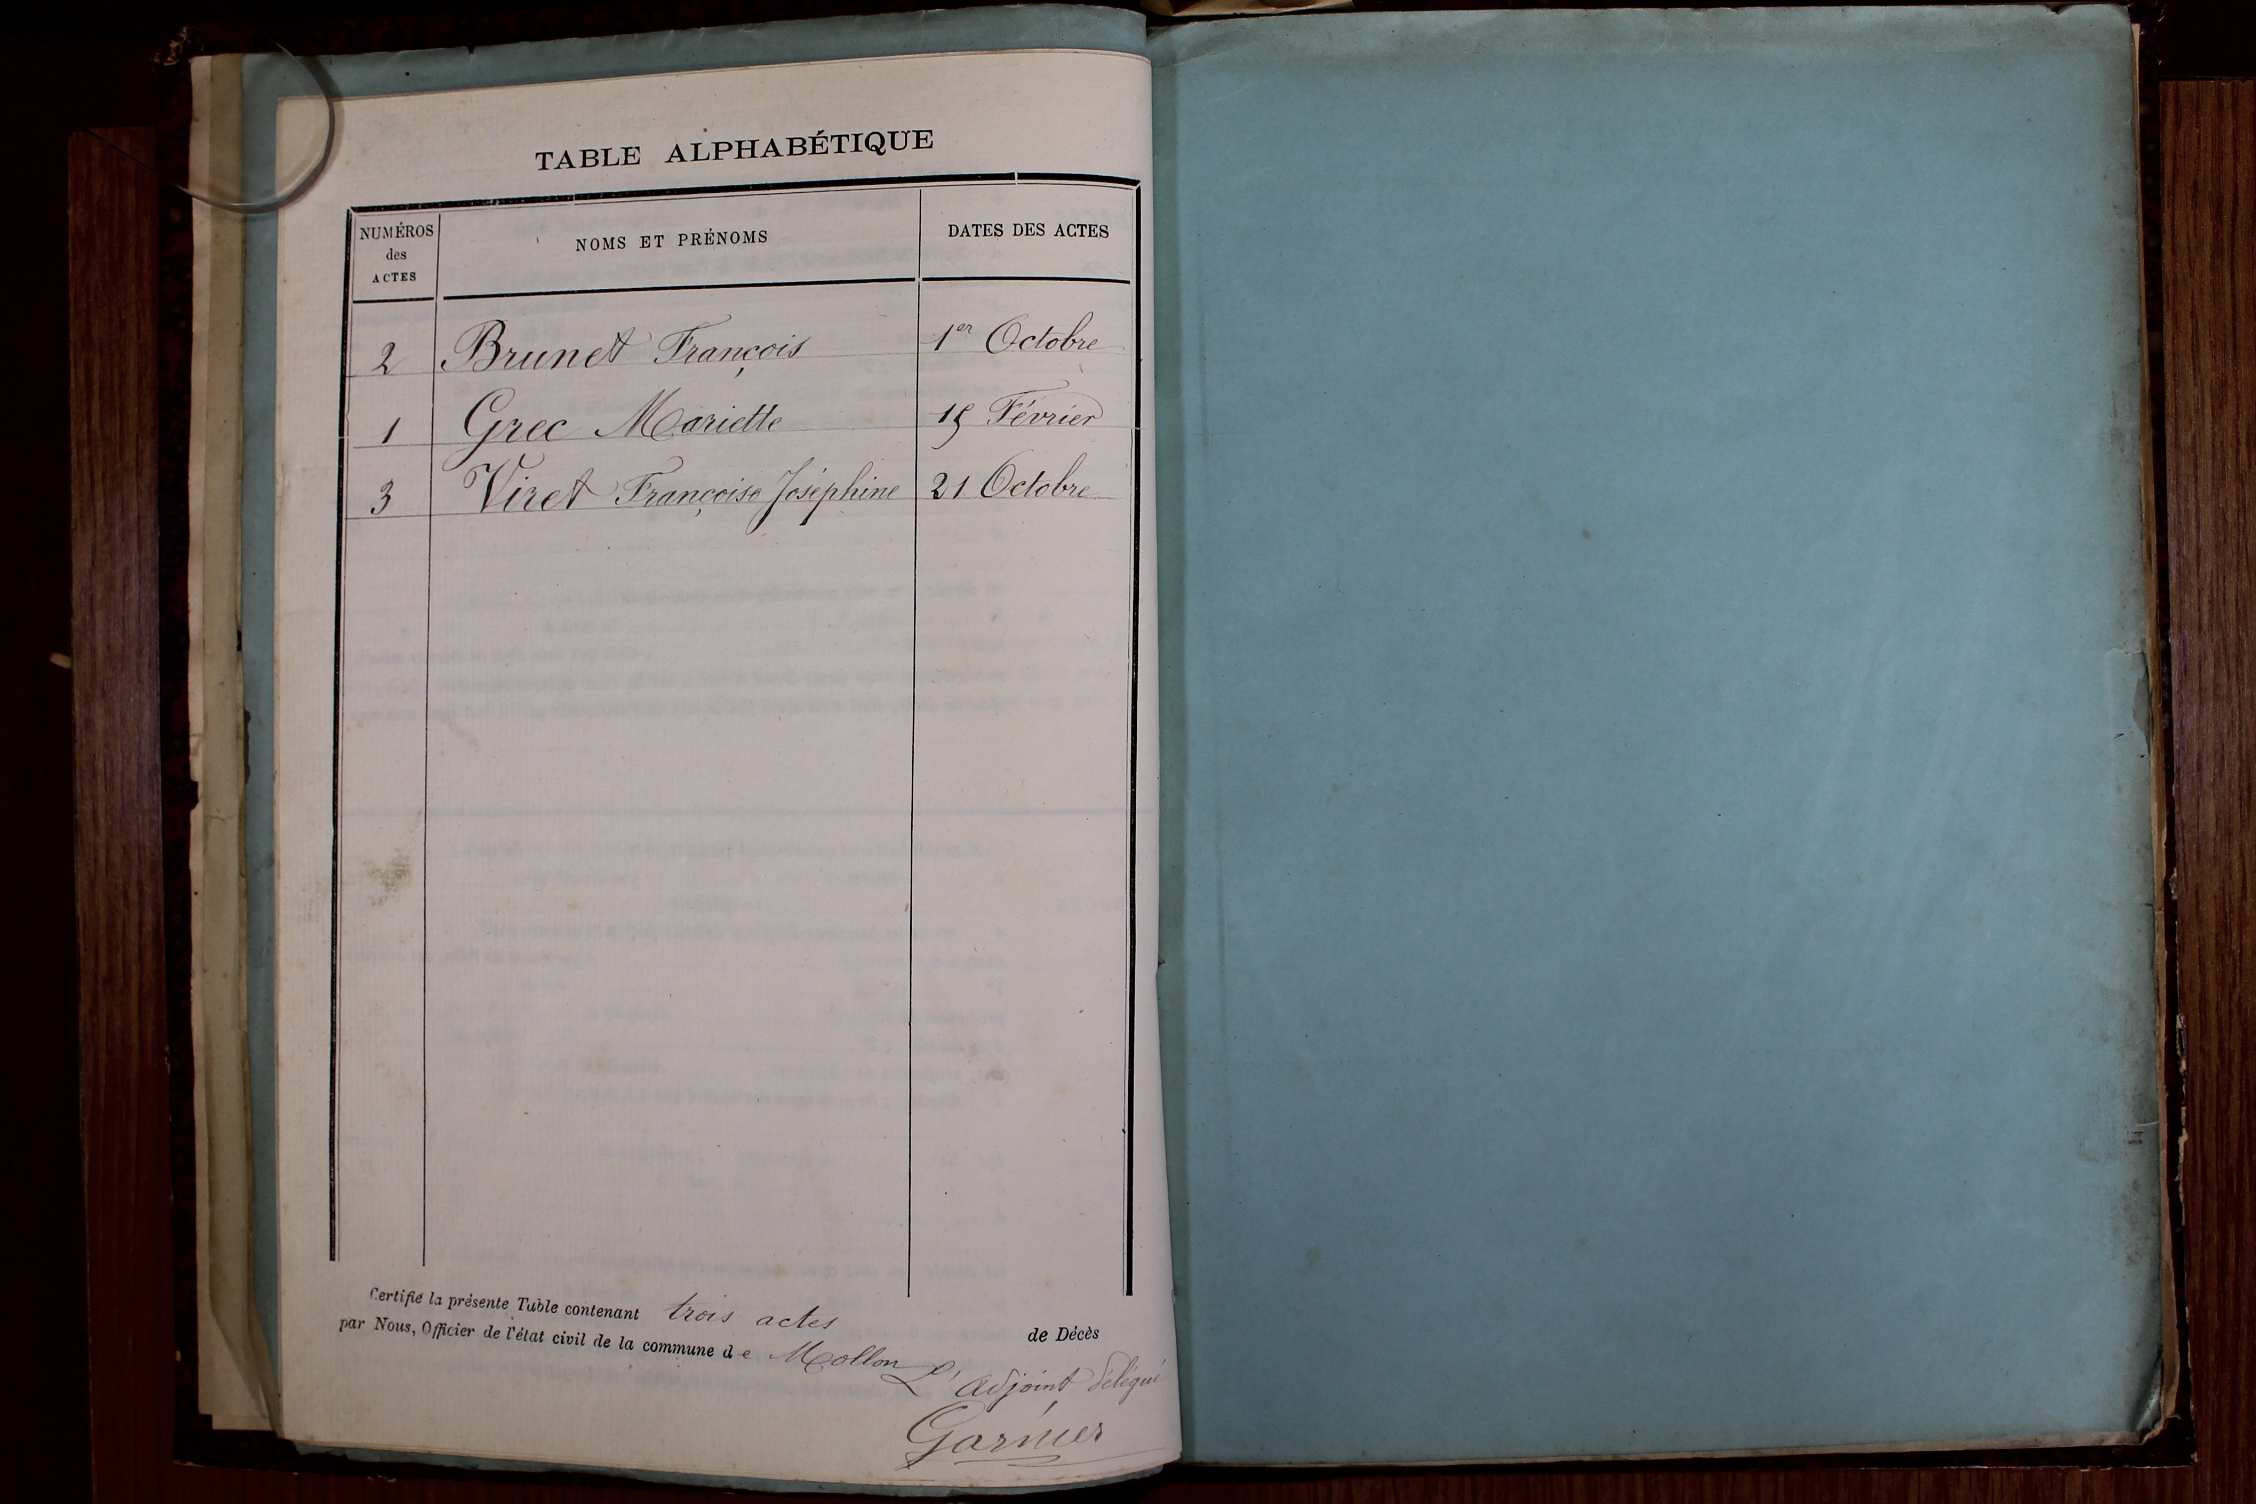 TABLE ALPHABÉTIQUE
NUMÉROS des ACTES NOMS ET PRÉNOMS DATES DES ACTES
2 Brunet François 1er Octobre
1 Grec Mariette 15 Février
3 Viret Françoise Joséphine 21 Octobre
Certifié la présente Table contenant trois actes de Décès
par Nous, Officier de l'état civil de la commune de Mollon
L'adjoint délégué
Garnier